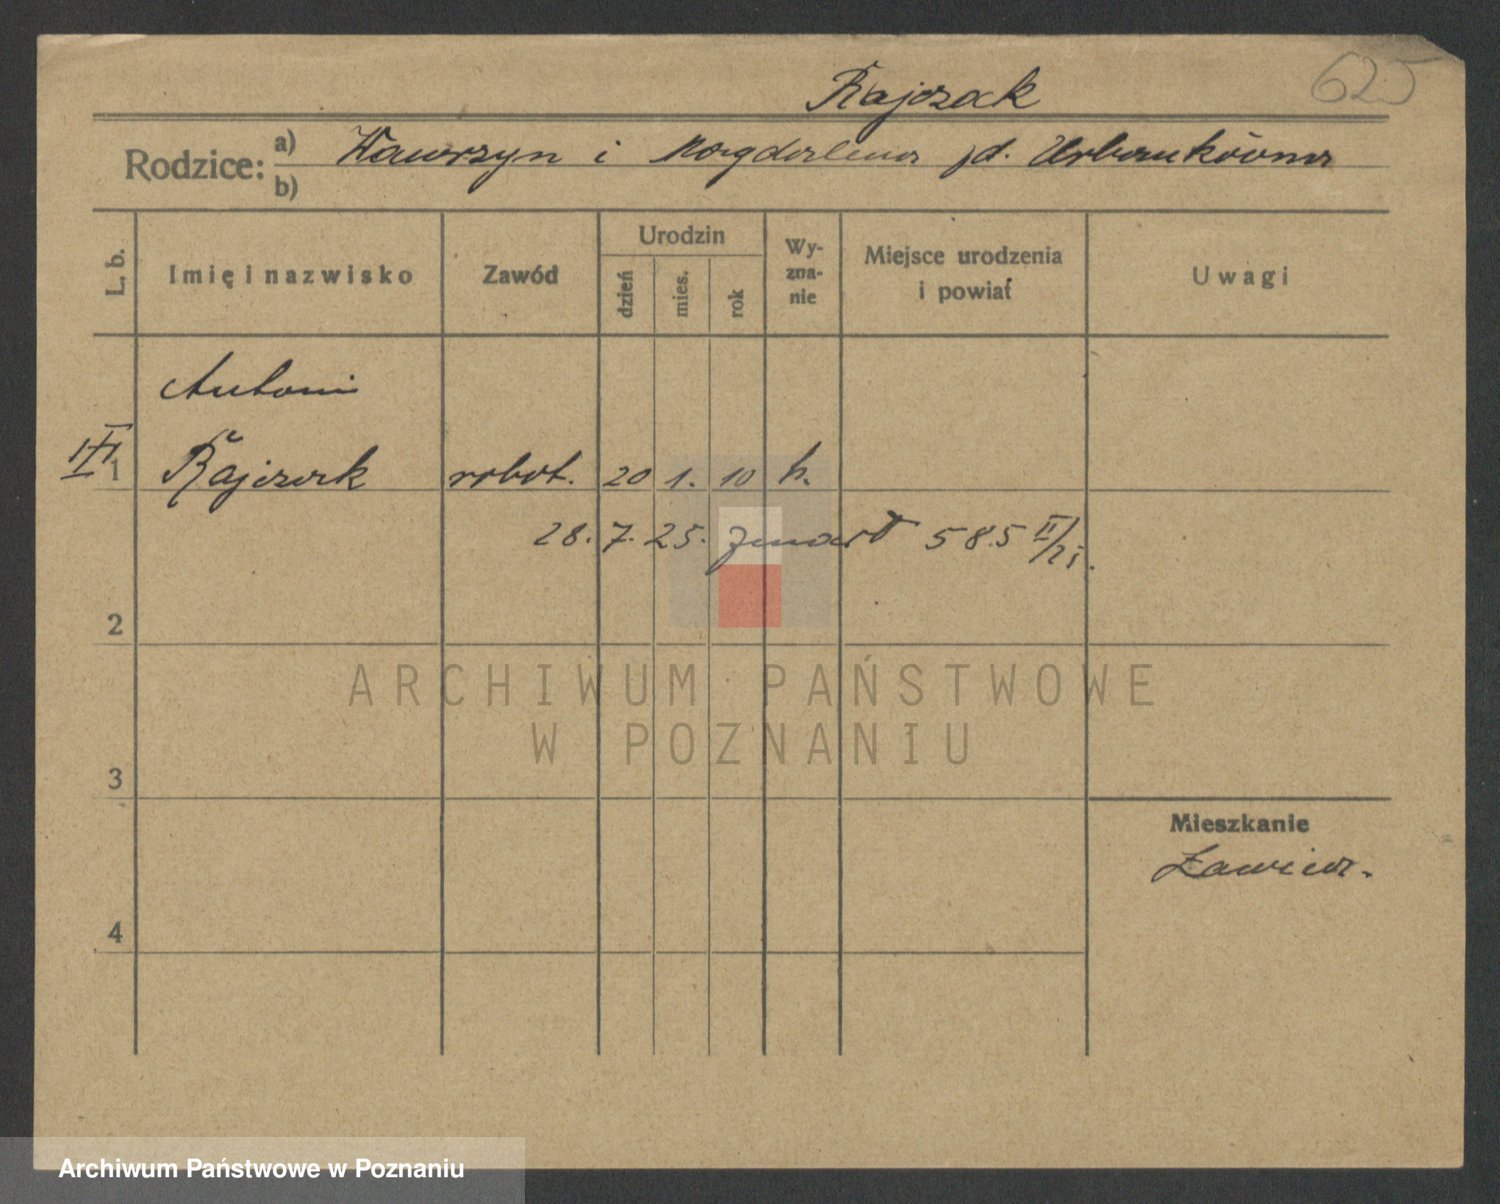 625
Rajczak
Rodzice: a) Wawrzyn i Magdalena d. Urbankówna
b)
L. b. Imię i nazwisko Zawód Urodzin dzień mies. rok Wy-zna-nie Miejsce urodzenia i powiat Uwagi
Antoni
1 Rajczak robot. 20 1. 10 k.
28. 7. 25. zmarł 585 II/25.
2
ARCHIWUM PAŃSTWOWE
W POZNANIU
3
Mieszkanie
4
Archiwum Państwowe w Poznaniu